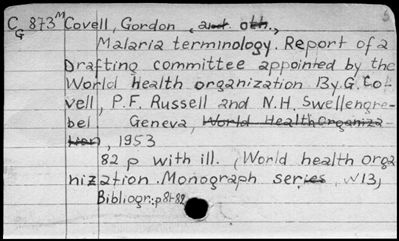 CG 873M Covell, Gordon, a.ut. oth.,
Malaria terminology. Report of a
Drafting committee appointed by the
World health organization By G. Co-
vell, P.F. Russell and N.H. Swellengre-
bel Geneva, World Health Organiza-
tion, 1953
82 p with ill. (World health orga
nization. Monograph series, N13)
Bibliogr.: p 81-82